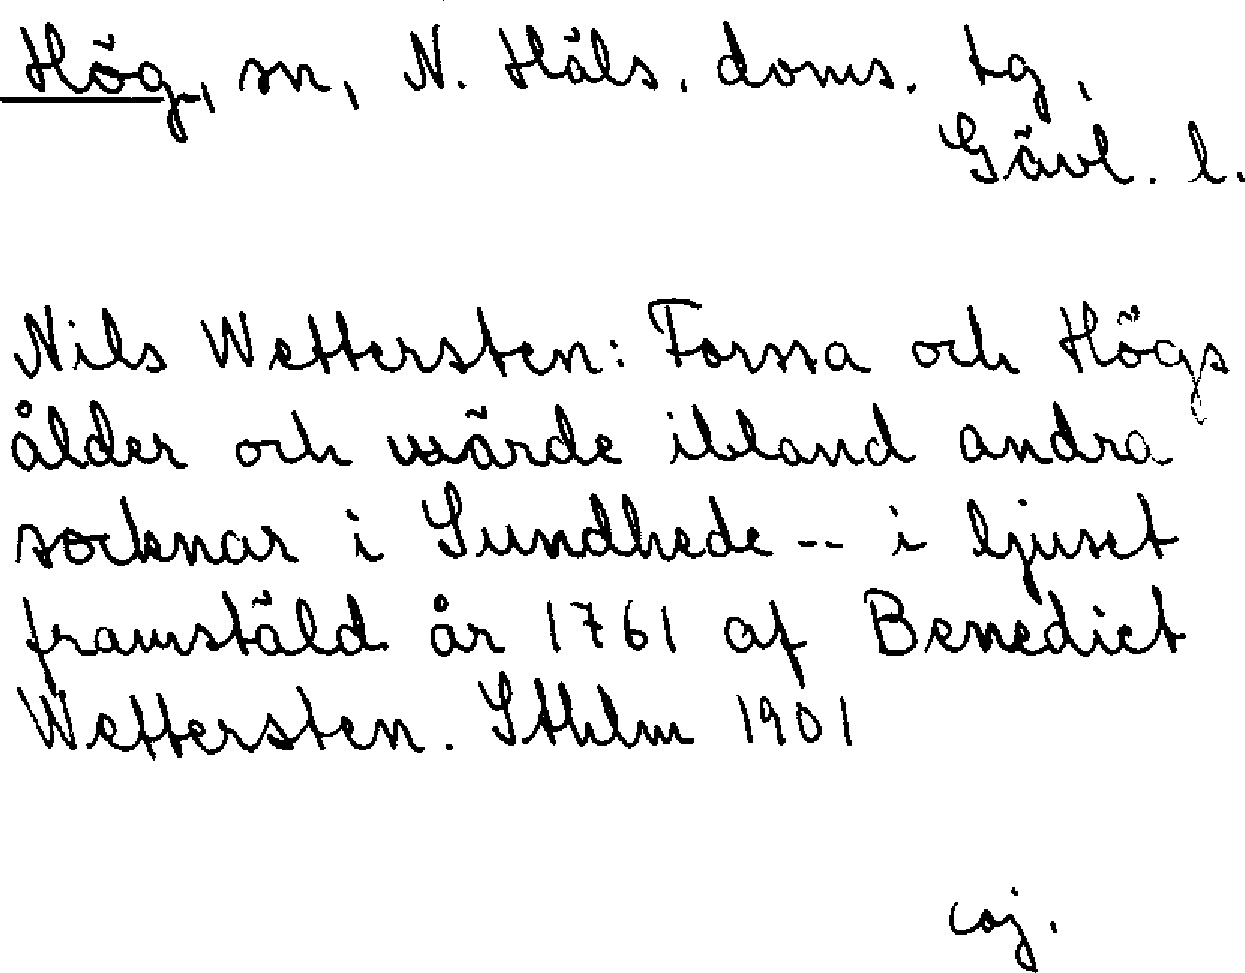 Hög, sn, N. Häls. doms. tg,
Gävl. l.
Nils Wettersten: Forssa och Högs
ålder och wärde ibland andra
socknar i Sundhede -- i ljuset
framstäld år 1761 af Benedict
Wettersten. Sthlm 1901
caj.